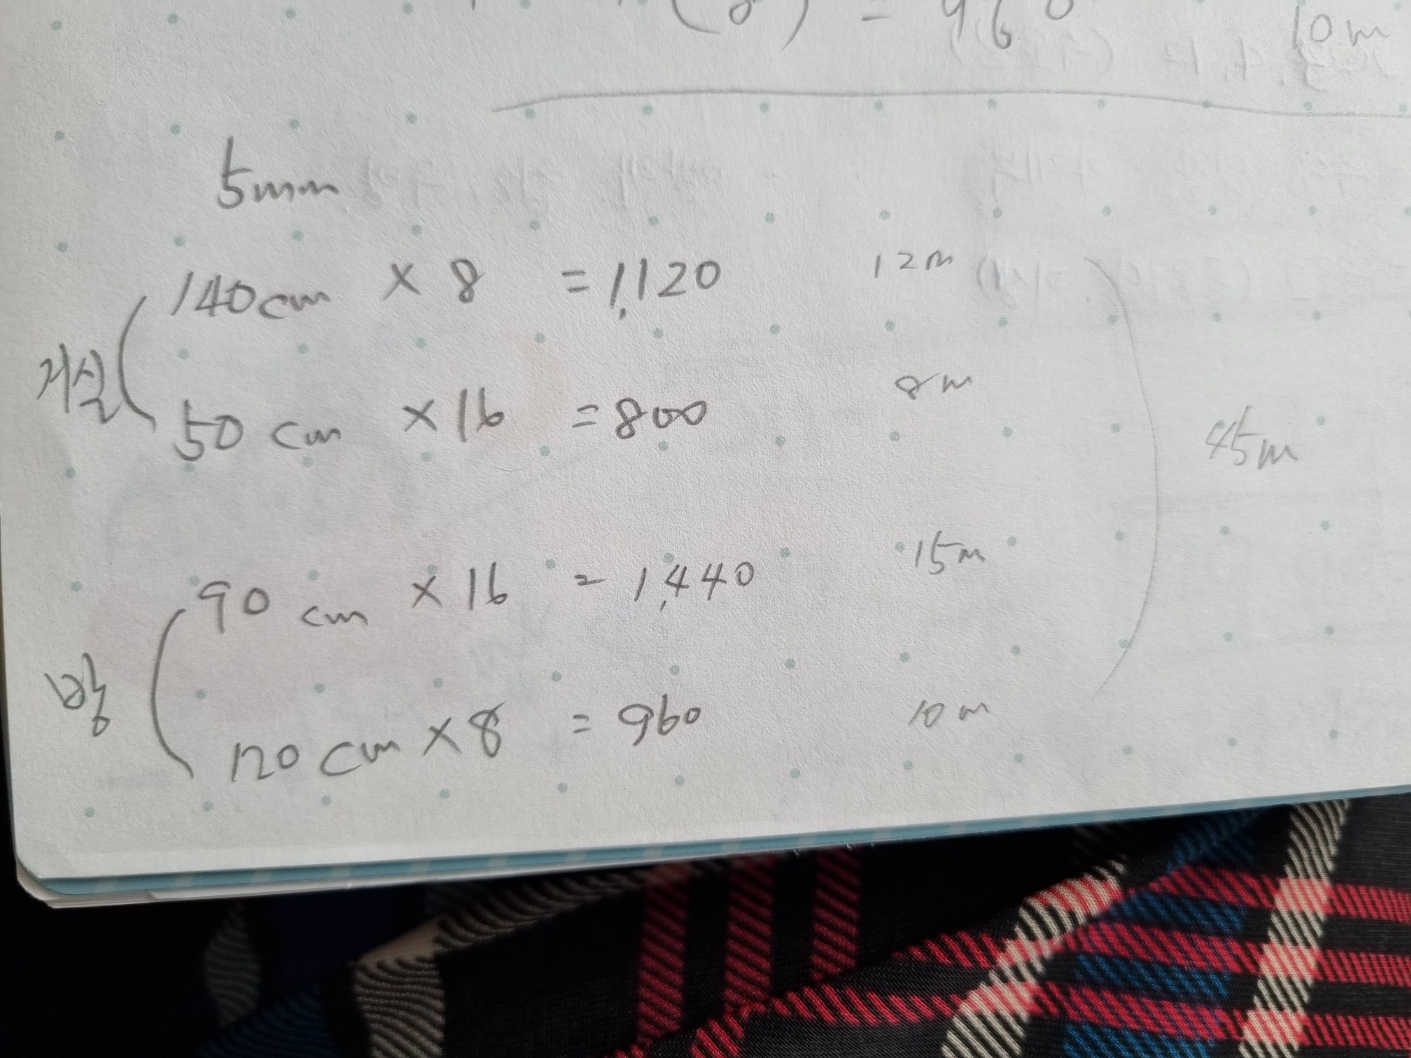 (8) = 960 10m
5mm
거실
140cm × 8 = 1,120 12m
50 cm × 16 = 800 8m
45m
방
90 cm × 16 = 1,440 15m
120 cm × 8 = 960 10m